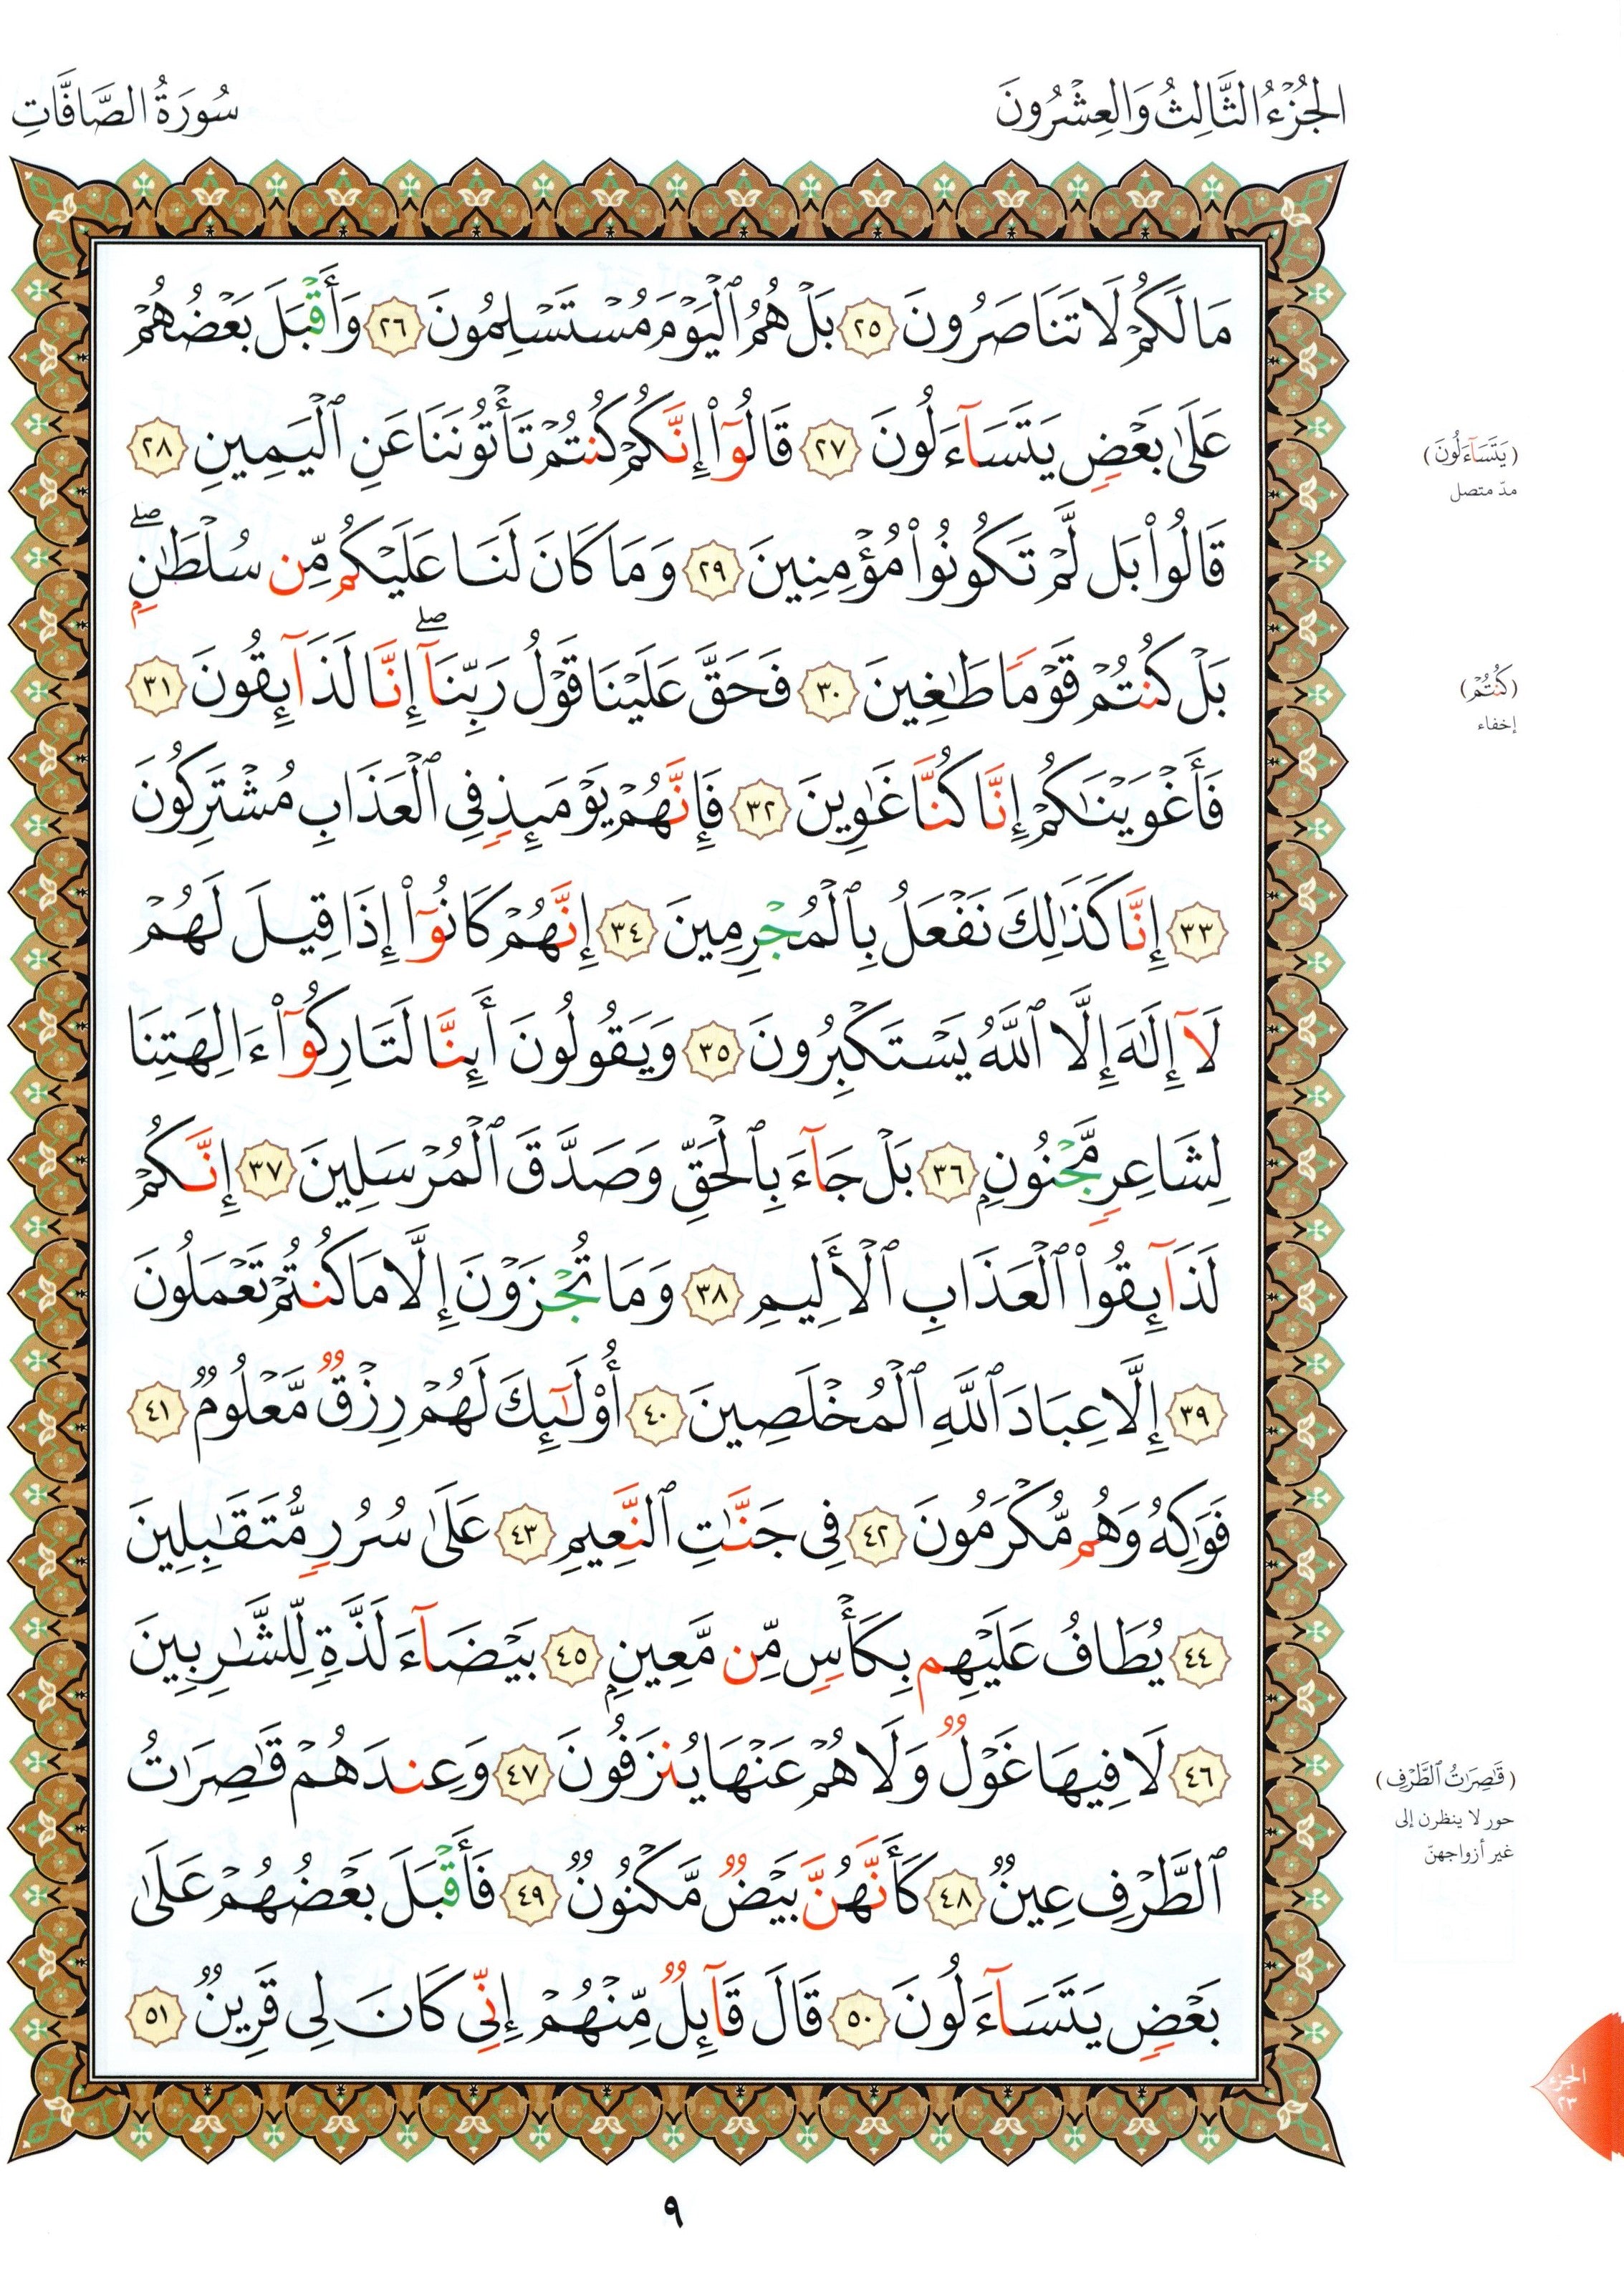 الجُزْءُ الثَّالِثُ وَالعِشْرُونَ
سُورَةُ الصَّافَّاتِ
مَا لَكُمْ لَا تَنَاصَرُونَ ٢٥ بَلْ هُمُ ٱلْيَوْمَ مُسْتَسْلِمُونَ ٢٦ وَأَقْبَلَ بَعْضُهُمْ
عَلَىٰ بَعْضٍ يَتَسَآءَلُونَ ٢٧ قَالُوٓا۟ إِنَّكُمْ كُنتُمْ تَأْتُونَنَا عَنِ ٱلْيَمِينِ ٢٨
قَالُوا۟ بَل لَّمْ تَكُونُوا۟ مُؤْمِنِينَ ٢٩ وَمَا كَانَ لَنَا عَلَيْكُم مِّن سُلْطَٰنٍۭ ۖ
بَلْ كُنتُمْ قَوْمًا طَٰغِينَ ٣٠ فَحَقَّ عَلَيْنَا قَوْلُ رَبِّنَآ ۖ إِنَّا لَذَآئِقُونَ ٣١
فَأَغْوَيْنَٰكُمْ إِنَّا كُنَّا غَٰوِينَ ٣٢ فَإِنَّهُمْ يَوْمَئِذٍ فِى ٱلْعَذَابِ مُشْتَرِكُونَ
٣٣ إِنَّا كَذَٰلِكَ نَفْعَلُ بِٱلْمُجْرِمِينَ ٣٤ إِنَّهُمْ كَانُوٓا۟ إِذَا قِيلَ لَهُمْ
لَآ إِلَٰهَ إِلَّا ٱللَّهُ يَسْتَكْبِرُونَ ٣٥ وَيَقُولُونَ أَئِنَّا لَتَارِكُوٓا۟ ءَالِهَتِنَا
لِشَاعِرٍ مَّجْنُونٍۭ ٣٦ بَلْ جَآءَ بِٱلْحَقِّ وَصَدَّقَ ٱلْمُرْسَلِينَ ٣٧ إِنَّكُمْ
لَذَآئِقُوا۟ ٱلْعَذَابِ ٱلْأَلِيمِ ٣٨ وَمَا تُجْزَوْنَ إِلَّا مَا كُنتُمْ تَعْمَلُونَ
٣٩ إِلَّا عِبَادَ ٱللَّهِ ٱلْمُخْلَصِينَ ٤٠ أُو۟لَٰٓئِكَ لَهُمْ رِزْقٌ مَّعْلُومٌ ٤١
فَوَٰكِهُ وَهُم مُّكْرَمُونَ ٤٢ فِى جَنَّٰتِ ٱلنَّعِيمِ ٤٣ عَلَىٰ سُرُرٍ مُّتَقَٰبِلِينَ
٤٤ يُطَافُ عَلَيْهِم بِكَأْسٍ مِّن مَّعِينٍۭ ٤٥ بَيْضَآءَ لَذَّةٍ لِّلشَّٰرِبِينَ
٤٦ لَا فِيهَا غَوْلٌ وَلَا هُمْ عَنْهَا يُنزَفُونَ ٤٧ وَعِندَهُمْ قَٰصِرَٰتُ
ٱلطَّرْفِ عِينٌ ٤٨ كَأَنَّهُنَّ بَيْضٌ مَّكْنُونٌ ٤٩ فَأَقْبَلَ بَعْضُهُمْ عَلَىٰ
بَعْضٍ يَتَسَآءَلُونَ ٥٠ قَالَ قَآئِلٌ مِّنْهُمْ إِنِّى كَانَ لِى قَرِينٌ ٥١
(يَتَسَآءَلُونَ)
مدّ متصل
(كُنتُمْ)
إخفاء
(قَٰصِرَٰتُ ٱلطَّرْفِ)
حور لا ينظرن إلى
غير أزواجهنّ
الجزء
٢٣
٩